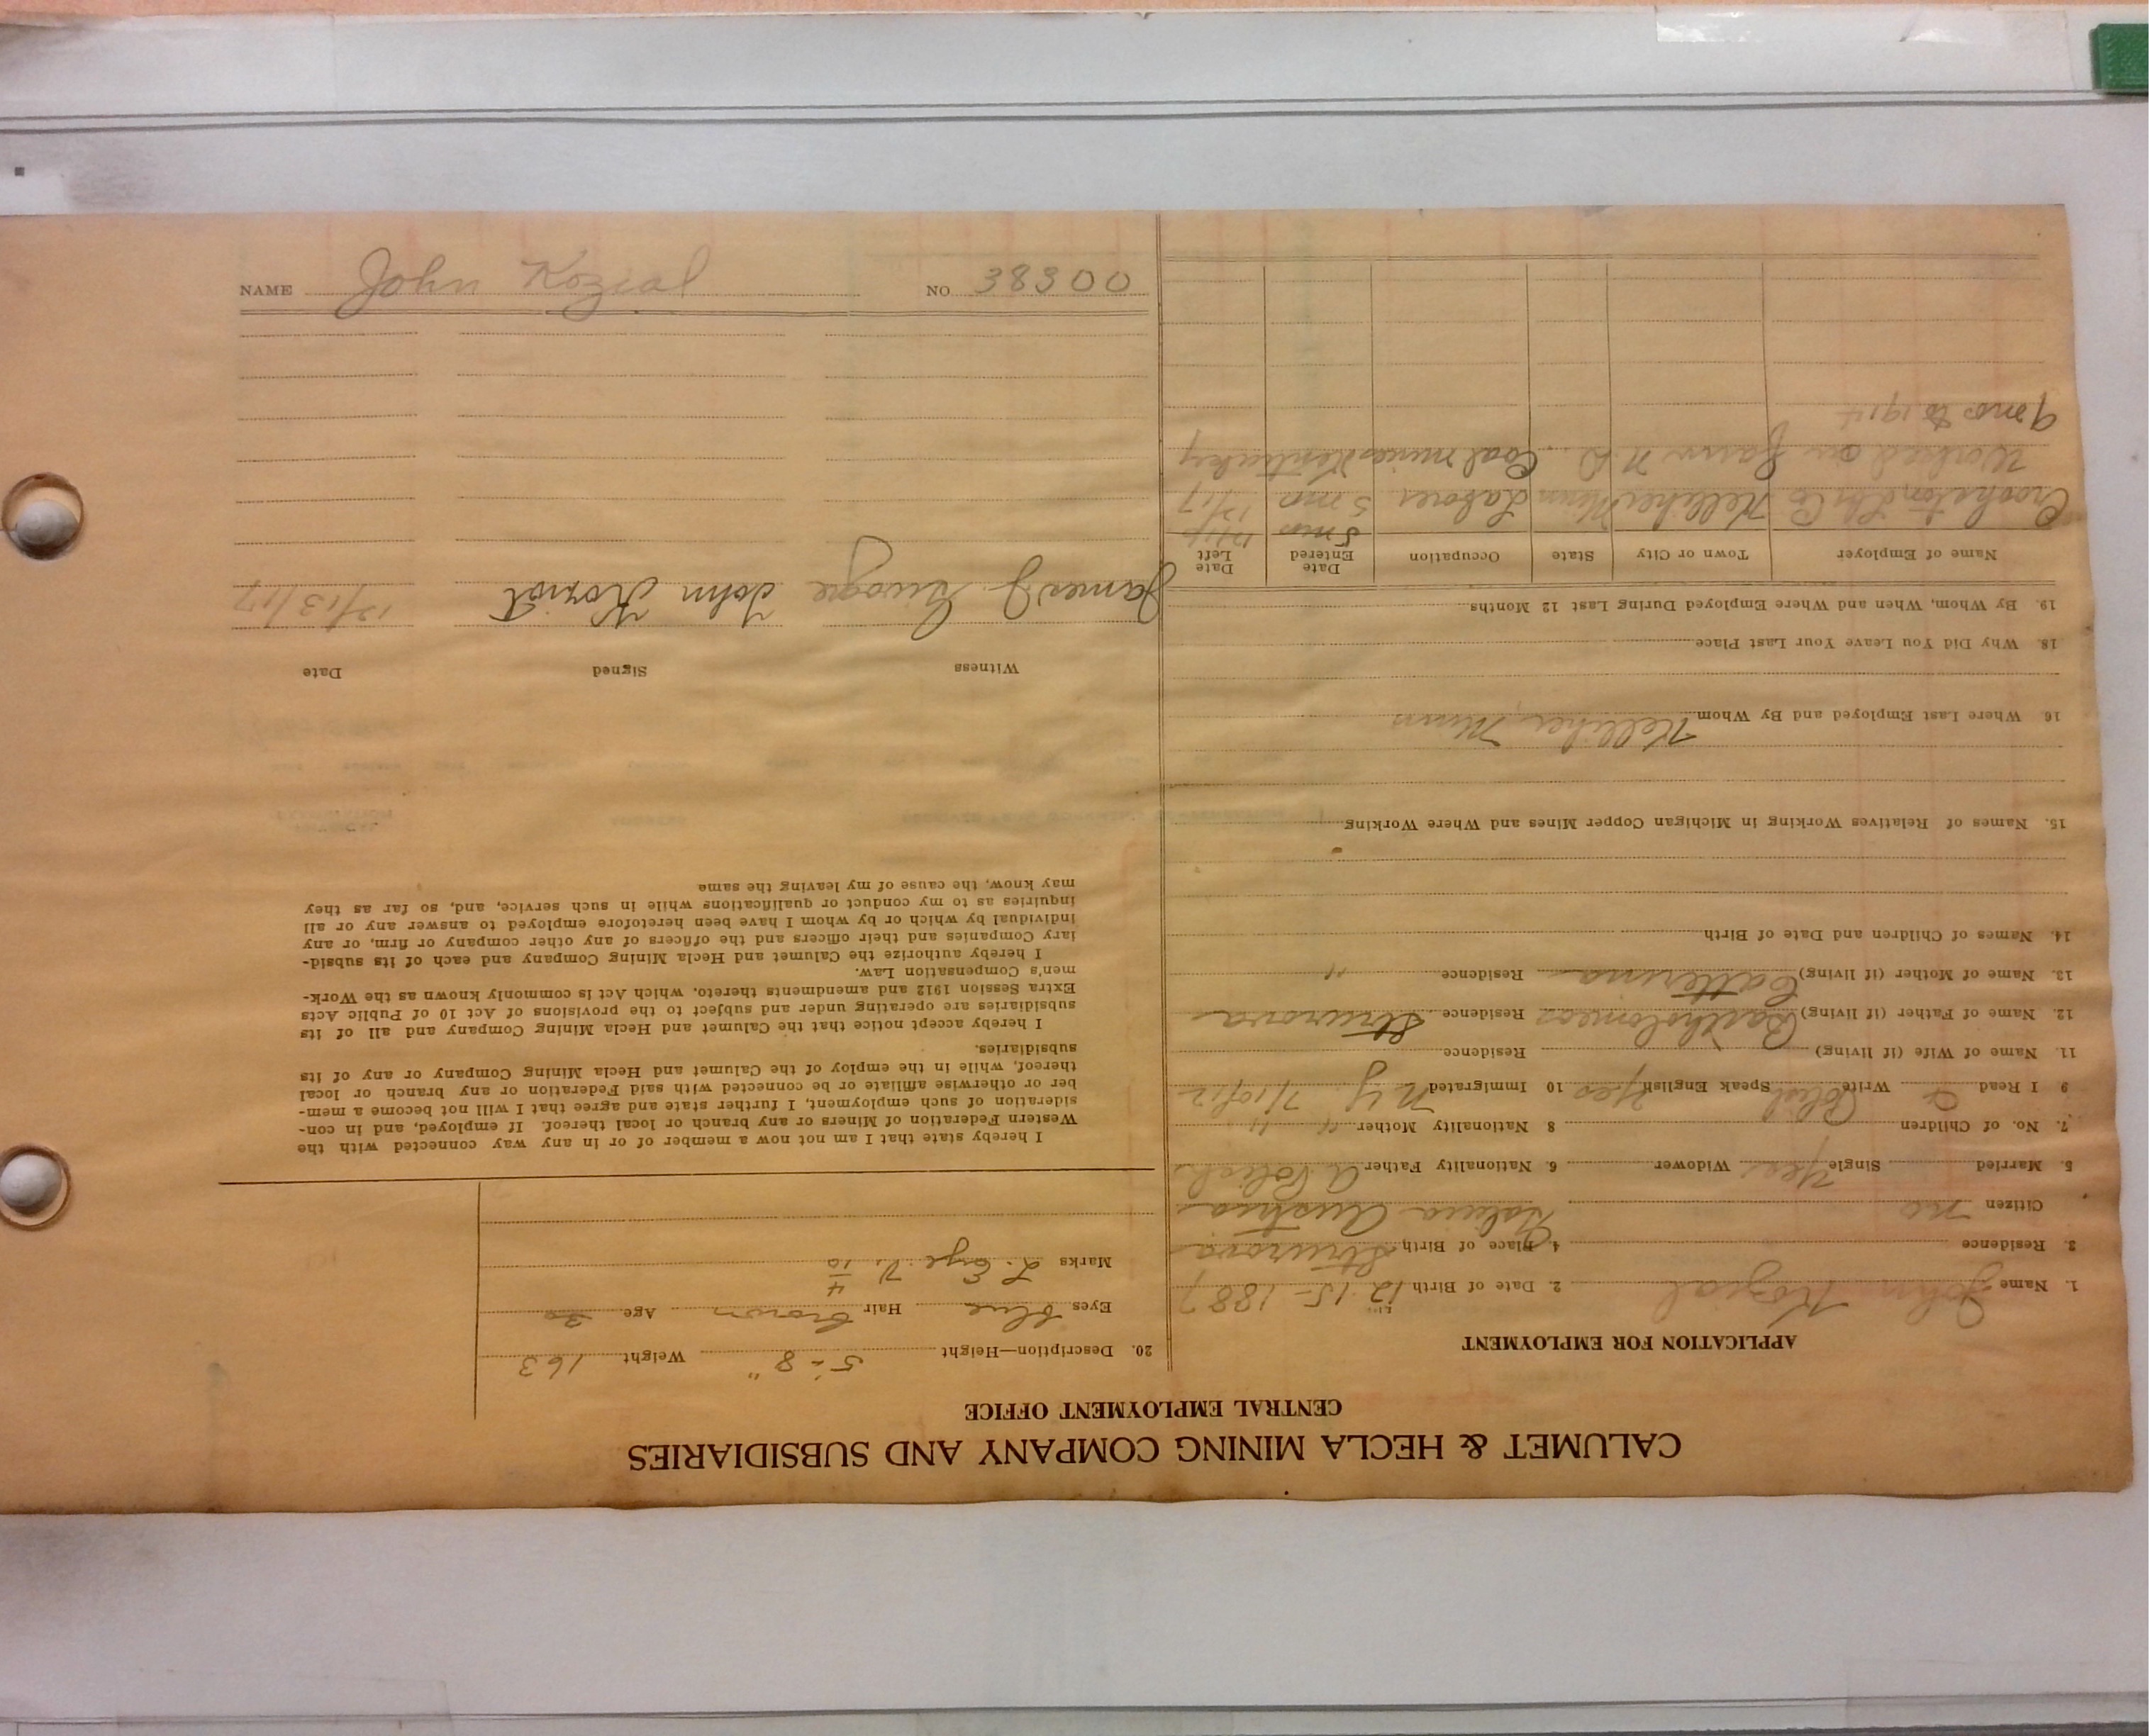 CALUMET & HECLA MINING COMPANY AND SUBSIDIARIES
CENTRAL EMPLOYMENT OFFICE
APPLICATION FOR EMPLOYMENT
1. Name John Kozial 2. Date of Birth 12-15-1887
3. Residence 4. Place of Birth
Citizen no Galicia Austria
5. Married Single Yes Widower 6. Nationality Father A Polish
7. No. of Children 8 Nationality Mother " "
9 I Read Write Polish Speak English Yes 10 Immigrated N Y 7/10/12
11. Name of Wife (if living) Residence
12. Name of Father (if living) Residence
13. Name of Mother (if living) Residence "
14. Names of Children and Date of Birth
15. Names of Relatives Working in Michigan Copper Mines and Where Working
16. Where Last Employed and By Whom Kelliher, Minn
18. Why Did You Leave Your Last Place
19. By Whom, When and Where Employed During Last 12 Months
Name of Employer Town or City State Occupation Date Entered Date Left
5 mos
Crookston Lbr Co Kelliher Minn Laborer 5 mo 12/17
Worked on farm N.D. Coal mines Kentucky
9 mos to 1914
20. Description—Height 5'-8" Weight 163
Eyes blue Hair brown Age 30
Marks L. Eye V. 4/10
I hereby state that I am not now a member of or in any way connected with the
Western Federation of Miners or any branch or local thereof. If employed, and in con-
sideration of such employment, I further state and agree that I will not become a mem-
ber or otherwise affiliate or be connected with said Federation or any branch or local
thereof, while in the employ of the Calumet and Hecla Mining Company or any of its
subsidiaries.
I hereby accept notice that the Calumet and Hecla Mining Company and all of its
subsidiaries are operating under and subject to the provisions of Act 10 of Public Acts
Extra Session 1912 and amendments thereto, which Act is commonly known as the Work-
men's Compensation Law.
I hereby authorize the Calumet and Hecla Mining Company and each of its subsid-
iary Companies and their officers and the officers of any other company or firm, or any
individual by which or by whom I have been heretofore employed to answer any or all
inquiries as to my conduct or qualifications while in such service, and, so far as they
may know, the cause of my leaving the same
Witness Signed Date
James J. John Koziol 12/13/17
NAME John Kozial NO. 38300